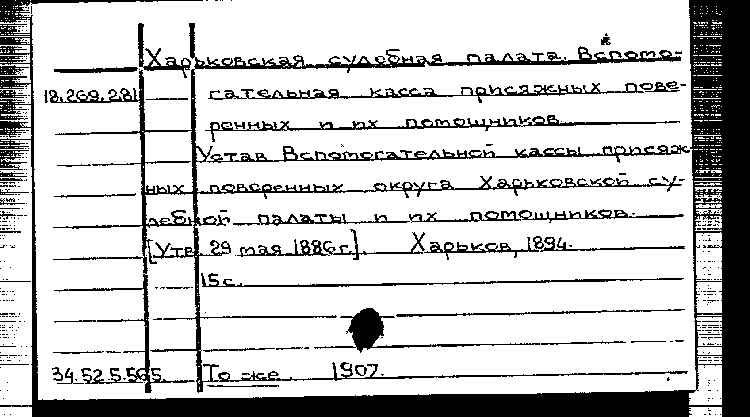 Харьковская судебная палата. Вспомо-
18.269.281 гательная касса присяжных пове-
ренных и их помощников.
Устав Вспомогательной кассы присяж-
ных поверенных округа Харьковской су-
дебной палаты и их помощников.
[Утв. 29 мая 1886 г.]. Харьков, 1894.
15 с.
34.52.5.565. То же. 1907.